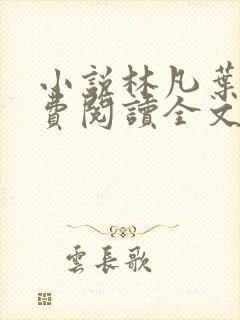 小說林凡葉
費閱讀全文
雲長歌